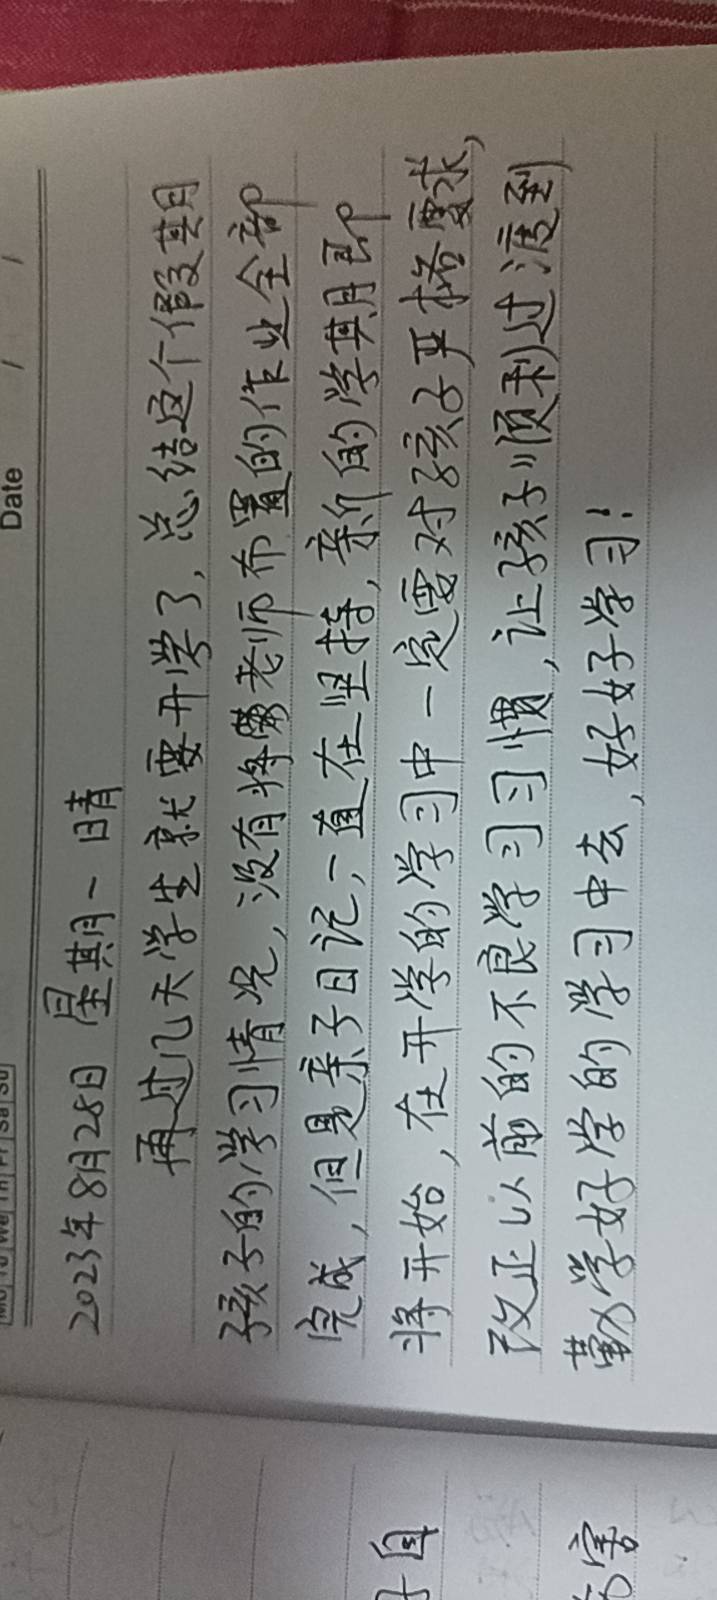 Mo Tu We Th Fr Sa Su
Date / /
2023年8月28日 星期一 晴
再过几天学生就要开学了，总结这个假期
孩子的学习情况，没有将老师布置的作业全部
完成，但是亲子日记，一直在坚持，新的学期即
将开始，在开学的学习中一定要对孩子严格要求，
改正以前的不良学习习惯，让孩子顺利过渡到
勤学好学的学习中去，好好学习！